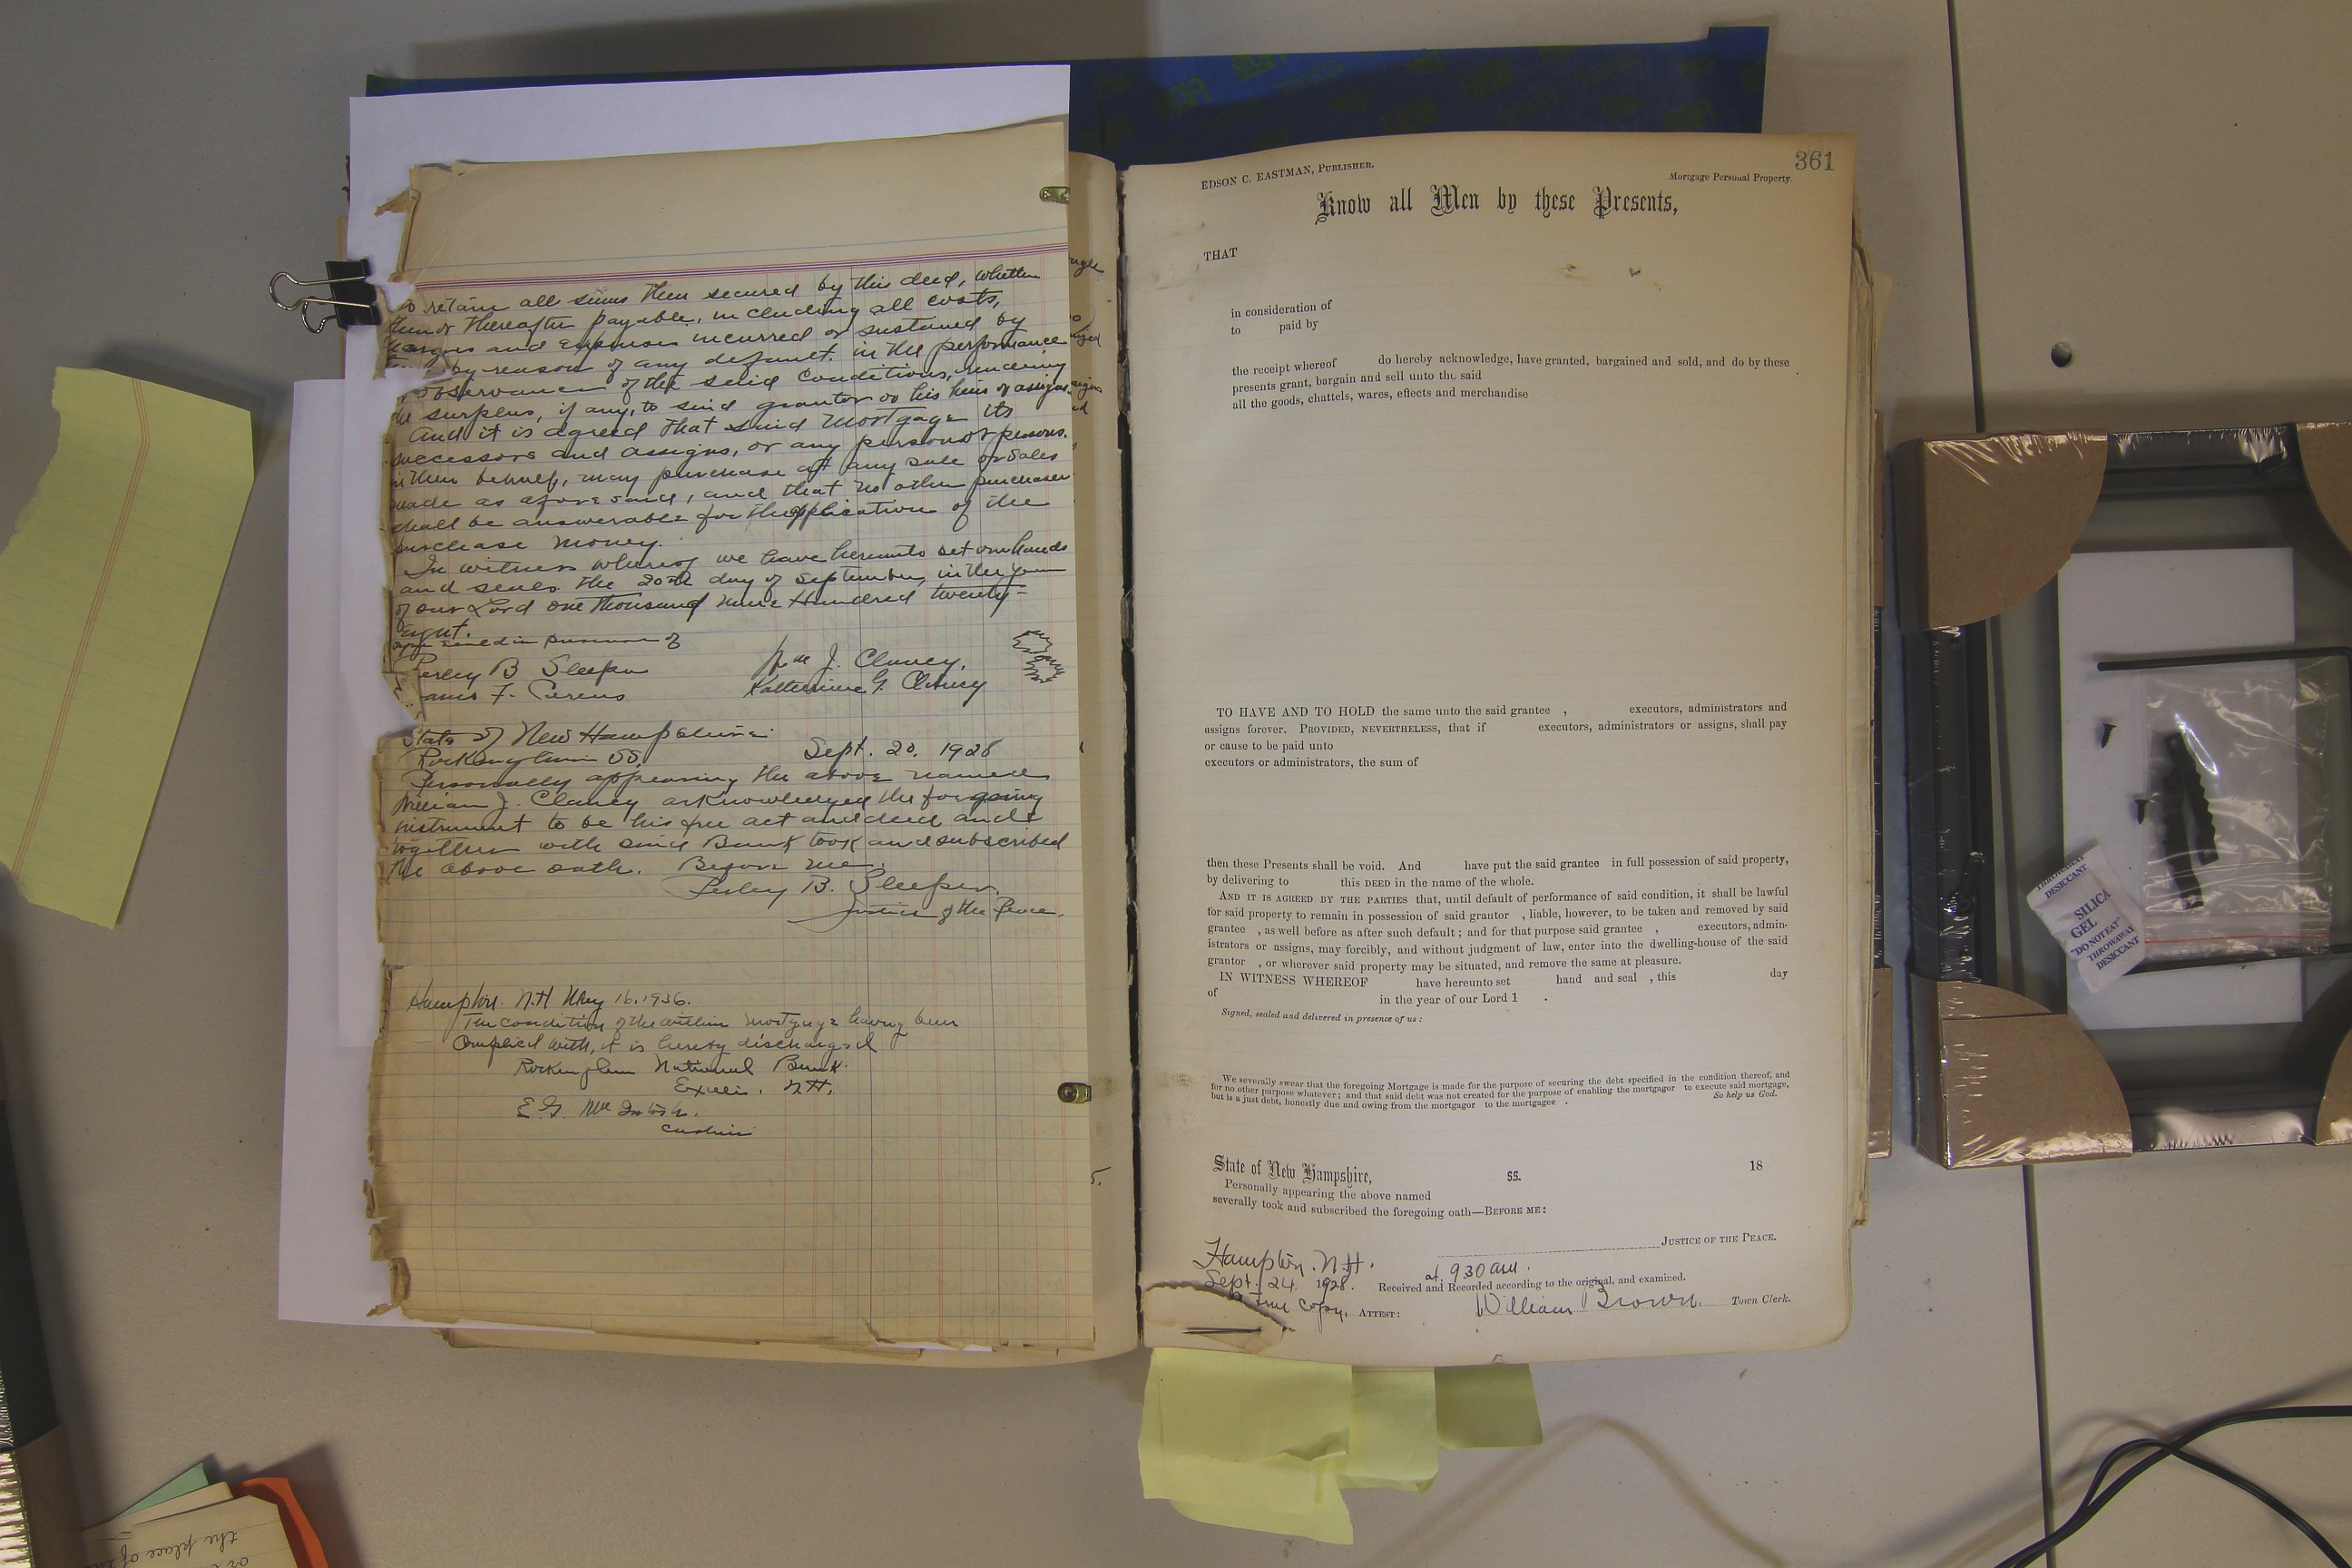 to retain all sums then secured by this deed, whether
then or thereafter payable, including all costs,
charges and expenses incurred or sustained by
by reason of any default in the performance
or observance of the said conditions, rendering
the surplus, if any, to said grantor or his heirs or assigns.
And it is agreed that said Mortgage its
successors and assigns, or any person or persons
in their behalf, may purchase at any sale or sales
made as aforesaid, and that no other purchaser
shall be answerable for the application of the
purchase money.
In witness whereof we have hereunto set our hands
and seals the 20th day of September, in the year
of our Lord one thousand nine Hundred twenty-
eight.
sealed in presence of
Perley B Sleeper
Wm J. Clancy.
F. Cirens
Katherine G. Clancy
State of New Hampshire.
Rockingham SS. Sept. 20. 1928
Personally appearing the above named
William J. Clancy acknowledged the forgoing
instrument to be his free act and deed and
together with said Bank took and subscribed
the above oath. Before me.
Perley B. Sleeper.
Justice of the Peace.
Hampton. N.H May 16. 1936.
The condition of the within mortgage having been
Complied with, it is hereby discharged
Rockingham National Bank.
Exeter. N.H.
E. G. McIntosh.
cashier
361
EDSON C. EASTMAN, PUBLISHER.
Mortgage Personal Property.
Know all Men by these Presents,
THAT
in consideration of
to paid by
the receipt whereof do hereby acknowledge, have granted, bargained and sold, and do by these
presents grant, bargain and sell unto the said
all the goods, chattels, wares, effects and merchandise
TO HAVE AND TO HOLD the same unto the said grantee , executors, administrators and
assigns forever. PROVIDED, NEVERTHELESS, that if executors, administrators or assigns, shall pay
or cause to be paid unto
executors or administrators, the sum of
then these Presents shall be void. And have put the said grantee in full possession of said property,
by delivering to this DEED in the name of the whole.
AND IT IS AGREED BY THE PARTIES that, until default of performance of said condition, it shall be lawful
for said property to remain in possession of said grantor , liable, however, to be taken and removed by said
grantee , as well before as after such default ; and for that purpose said grantee , executors, admin-
istrators or assigns, may forcibly, and without judgment of law, enter into the dwelling-house of the said
grantor , or wherever said property may be situated, and remove the same at pleasure.
IN WITNESS WHEREOF have hereunto set hand and seal , this day
of in the year of our Lord 1 .
Signed, sealed and delivered in presence of us :
We severally swear that the foregoing Mortgage is made for the purpose of securing the debt specified in the condition thereof, and
for no other purpose whatever ; and that said debt was not created for the purpose of enabling the mortgagor to execute said mortgage,
but is a just debt, honestly due and owing from the mortgagor to the mortgagee . So help us God.
State of New Hampshire, SS. 18
Personally appearing the above named
severally took and subscribed the foregoing oath—BEFORE ME:
JUSTICE OF THE PEACE.
Hampton. N.H.
Sept. 24. 1928. at 9.30 am.
Received and Recorded according to the original, and examined.
A True Copy. ATTEST: William Brown. Town Clerk.
THROWAWAY
DESICCANT
SILICA
GEL
"DO NOT EAT"
THROWAWAY
DESICCANT
the place of